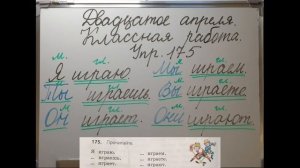 Двадцатое апреля.
Классная работа.
Упр. 175
м. гл. м. гл.
Я играю. Мы играем.
Ты играешь. Вы играете.
Он играет. Они играют.
175. Прочитайте.
Я играю. ... играем.
... играешь. ... играете.
... играет. ... играют.